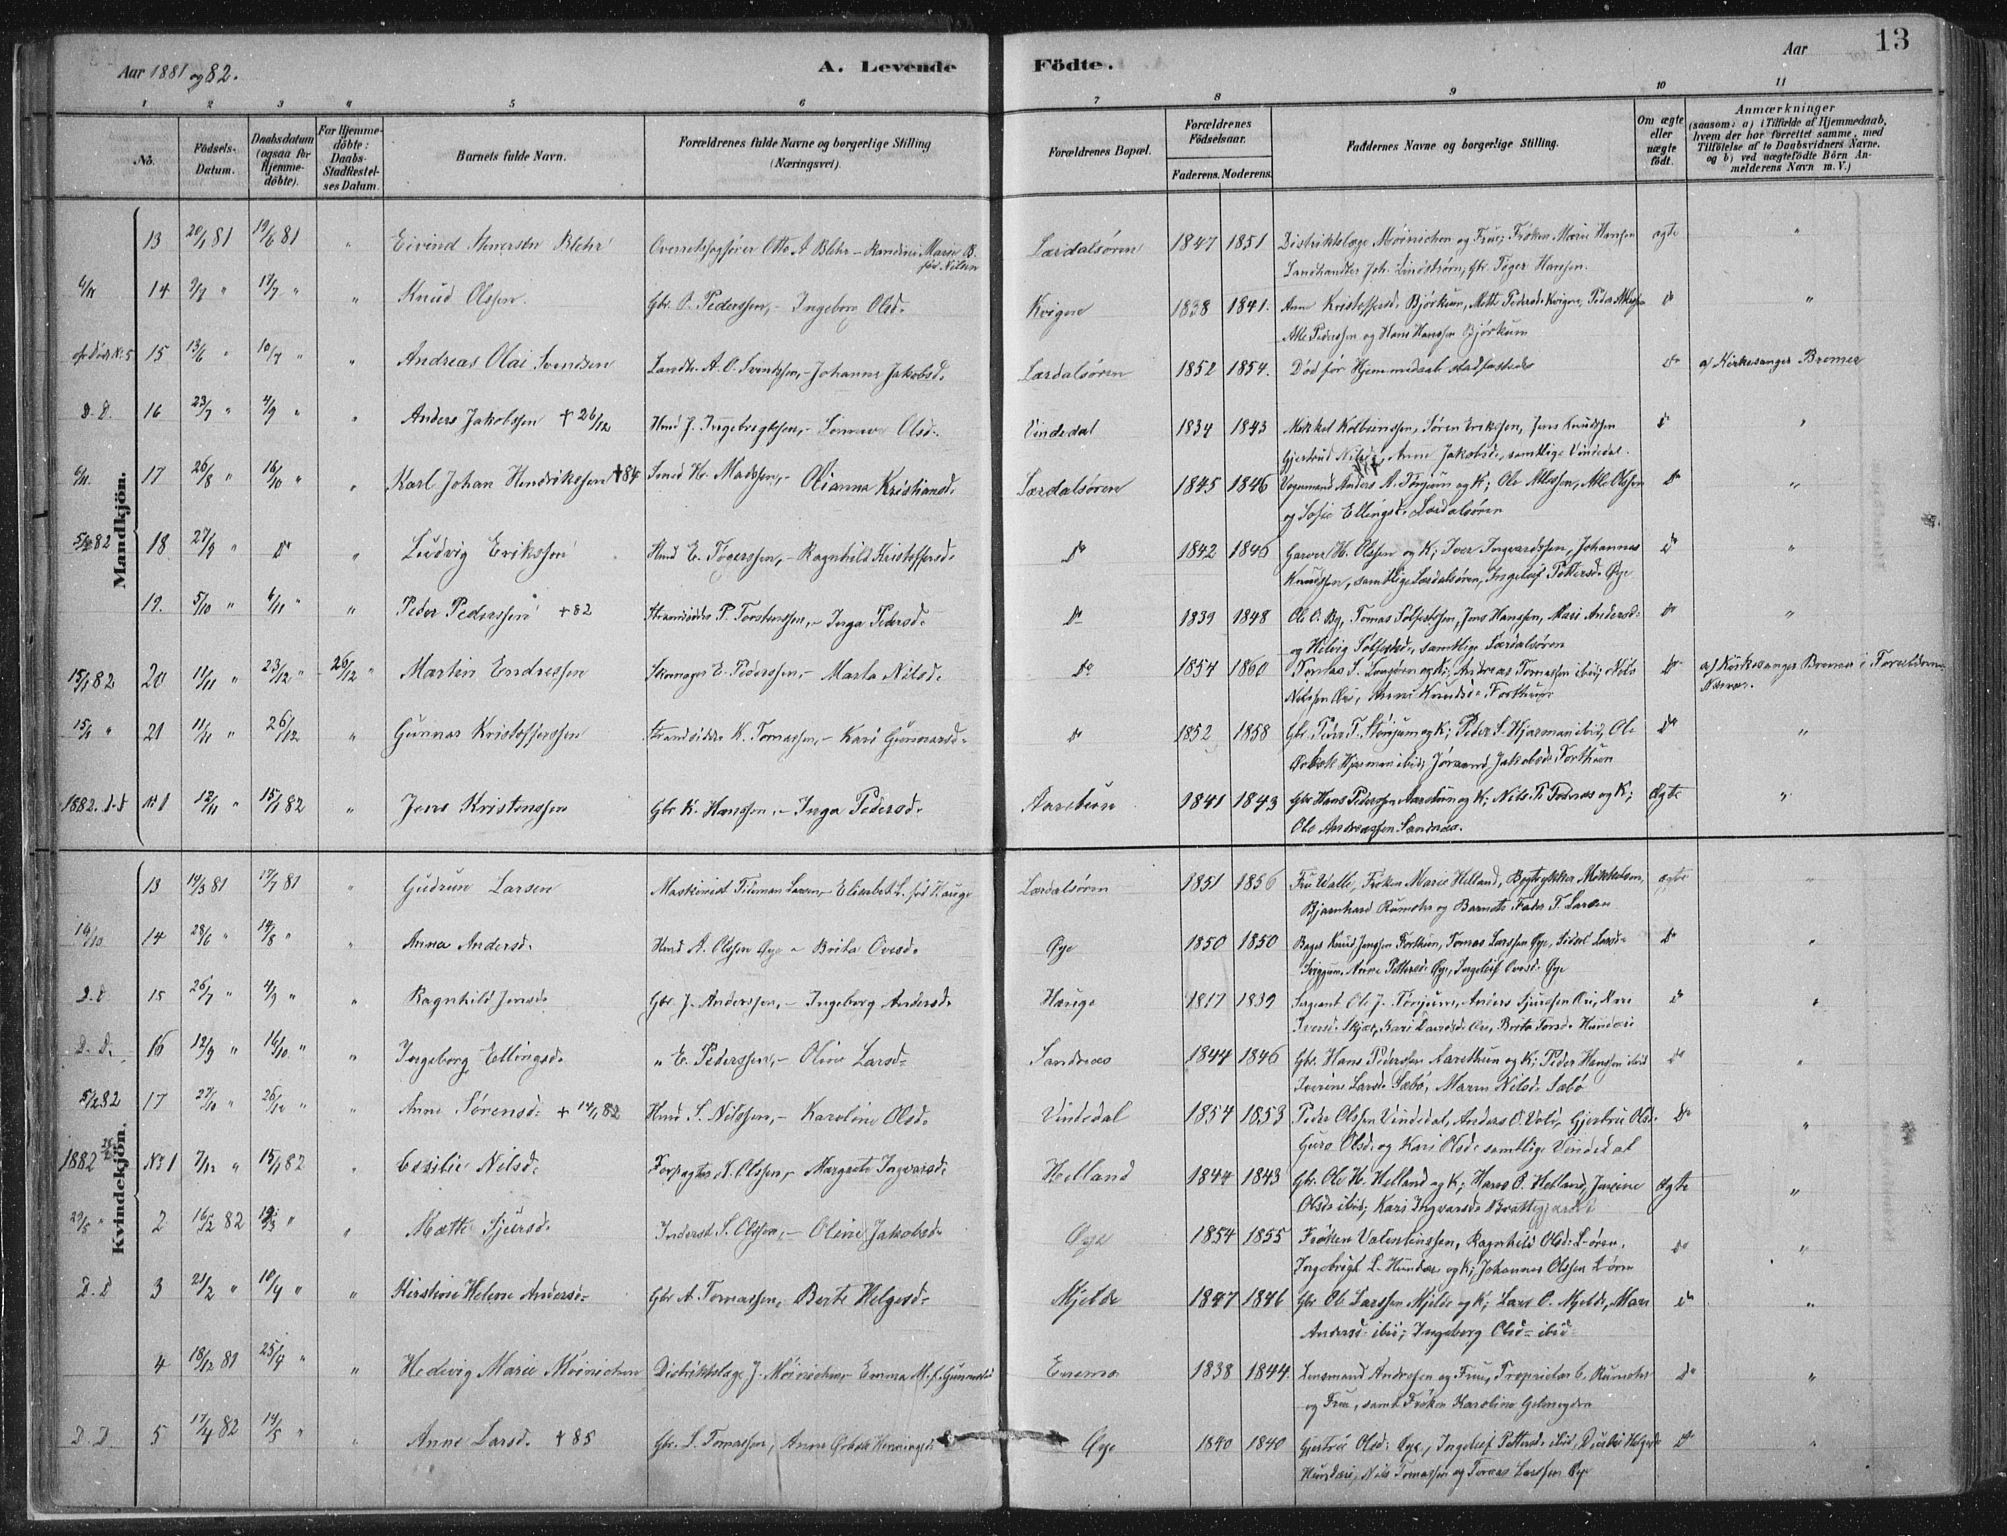 13
Aar 1881 og 82.
A. Levende
Födte.
Aar
1 2 3 4 5 6
7 8 9 10 11
No.
Fødsels-Datum.
Daabsdatum (ogsaa for Hjemme-döbte).
For Hjemme-döbte: Daabs-Stadfæstel-ses Datum.
Barnets fulde Navn.
Forældrenes fulde Navne og borgerlige Stilling (Næringsvei).
Forældrenes Bopæl.
Forældrenes Födselsaar.
Faderens. Moderens.
Faddernes Navne og borgerlige Stilling.
Om ægte eller uægte födt.
Anmærkninger (saasom: a) i Tilfælde af Hjemmedaab, hvem der har forrettet samme, med Tilföielse af to Daabsvidners Navne. og b) ved uægtefödte Börn An-melderens Navn m. V.)
Mandkjön.
13 20/1 81 19/6 81 " Eivind Stenersen Blehr Overretssagfører Otto A. Blehr - Randine Marie B. fød Nilsen Lærdalsøren 1847 1851 Distriktslæge Moinichen og Frue, Frøken Marie Hansen ægte "
Landhandler Joh. Lindstrøm, Gbr. Tøger Hansen.
14 9/7 " 17/7 " " Knud Olssen. Gbr. O. Pederssen, - Ingeborg Olsd. Kvigne 1838 1841. Ane Kristoffersd. Bjørkum, Mette Pedersd. Kvigne, Peder Atlessen dº "
Atle Pederssen og Hans Hanssen Bjørkum
15 13/6 " 10/7 " " Andreas Olai Svendsen Landh. A. O. Svendsen, - Johanne Jakobsd. Lærdalsøren 1852 1854. Død før Hjemmedaab stadfæstedes dº a) Kirkesanger Bremer
D. D. 16 23/7 " 4/9 " " Anders Jakobssen + 26/12 Hmd J. Ingebrigtssen, - Olsd. Vindedal 1834 1843 Mikkel Kolbeinssen, Søren Erikssen, Jens Knudssen dº
Gjertrud Nilsd., Anne Jakobsd., samtlige Vindedal.
6/11. 17 26/8 " 16/10 " " Karl Johan Hendrikssen + 84 Smed H. Madssen, - Olianna Kristiansd. Lærdalsøren 1845 1846 Vognmand Anders A. Tønjum og K; Ole Atlessen, Atle Olssen dº "
og Sofie Ellingsd. Lærdalsøren
5/2 82 18. 27/9 " dº " Ludvig Erikssen Hmd E. Tøgerssen, - Ragnhild Kristoffersd. dº 1842 1846 Garver H. Olssen og K; Iver Ingvardssen, Johannes dº "
Knudssen, samtlige Lærdalsøren, Ingeleif Pettersd. Øye
19. 5/10 " 6/11 " " Peder Pederssen + 82 Strandsidder P. Torstenssen, - Inga Pedersd. dº 1839 1848 Ole O. By, Tomas Sølfestssen, Jens Hanssen, Mari Andersd. dº "
og Helvig Sølfestsd., samtlige Lærdalsøren
15/1 82 20 11/11 " 23/12 " 26/12 " Martin Endressen Skomager E. Pederssen, - Marta Nilsd. dº 1854 1860 Tomas S. og K; Andreas Tomassen ibid; dº a) Kirkesanger Bremer i Forældrenes Nærvær.
Nilssen Øri, Anni Knudsd. Forthun
15/1 " 21 11/11 " 26/12 " Gunnar Kristofferssen Strandsidder K. Tomassen, - Kari Gunnarsd. dº 1852 1858 Gbr. Peder T. Stønjum og K; Peder S. Hjarman ibid; Ole dº "
Ørbæk Hjarman ibid; Jørand Jakobsd. Forthun
1882. D. D Nº 1 12/11 " 15/1 82 " Jens Kristenssen Gbr. K. Hanssen, - Inga Pedersd. Aarethun 1841 1843 Gbr. Hans Pederssen Aarethun og K; Nils P. og K; Ægte "
Ole Andreassen Sandnæs.
Kvindekjön.
13 14/3 81 17/7 81 " Gudrun Larsen Maskinist Tideman Larsen, - Elisabet L. fød Hauge Lærdalsøren 1851 1856 Fru Walle, Frøken Marie Helland, Bogtrykker ægte "
Bjarnhard Rumohr og Barnets Fader T. Larsen
16/10 14 28/6 " 14/8 " " Anna Andersd. Hmd A. Olssen Øye - Brita Ovesd. Øye 1850 1850 Bager Knud Jenssen Forthun, Tomas Larssen Øye, Sidsel Larsd. dº "
Anne Pettersd. Øye, Ingeleif Ovesd. Øye
D. D 15 26/7 " 4/9 " " Ragnhild Jensd. Gbr. J. Anderssen, - Ingeborg Andersd. Hauge 1817 1839 Sergeant Ole J. Tønjum, Anders Sjurssen Øri, Kari dº "
Iversd. Skjær, Kari Øri, Brita Torsd. Hunderi
D. D. 16 12/9 " 16/10 " " Ingeborg Ellingsd. " E. Pederssen, - Oline Larsd. Sandnæs 1844 1846 Gbr. Hans Pederssen Aarethun og K; Peder Hanssen ibid dº "
Iverine Larsd. Sæbø, Maren Nilsd. Sæbø
5/2 82 17 27/10 " 26/12 " " Anne Sørensd. + 14/1 82 Hmd S. Nilssen, - Karoline Olsd. Vindedal 1854 1853 Peder Olssen Vindedal, Anders O. Voll, Gjertrud Olsd. dº "
Guro Olsd. og Kari Olsd. samtlige Vindedal
1882 Nº 1 7/12 " 15/1 82 " Cesilie Nilsd. Forpagter N. Olssen, - Margrete Ingvarsd. Helland 1844 1843 Gbr. Ole H. Helland og K; Hans O. Helland, Ægte "
Olsd. ibid; Kari Ingvarsd. Brattegjerde
29/5 " 2 16/2 82 19/3 " " Mætte Sjursd. Inderst S. Olssen, - Oline Jakobsd. Øye 1854 1855 Frøken Valentinssen, Ragnhild Olsd. L-øren. dº "
Ingebrigt L. Hunderi og K; Johannes Olssen L-øren
D. D 3 21/2 " 10/4 " " Kirstine Helene Andersd. Gbr. A. Tomassen, Berte Helgesd. Mjelde 1847 1846 Gbr. Ole Larssen Mjelde og K; Lars O. Mjelde, Mari dº "
Andersd. ibid; Ingeborg Olsd. ibid.
4 18/12 81 25/4 " " Hedvig Marie Moinichen Distriktslæge J. Moinichen, - Emma M. f. Eremo 1838 1844. Lensmand Andressen og Frue, Proprietær C. Rumohr dº "
og Frue, samt Frøken Karoline Gelmeyden
D. D. 5 17/4 82 14/5 " " Anne Larsd. + 85 Gbr. L. Tomassen, Anne Ørbæk Henningsd. Øye 1840 1840 Gjertrud Olsd. Øye, Ingeleif Pettersd. ibid, Helgesd. dº "
Hunderi, Nils Tomassen og Tomas Larssen Øye